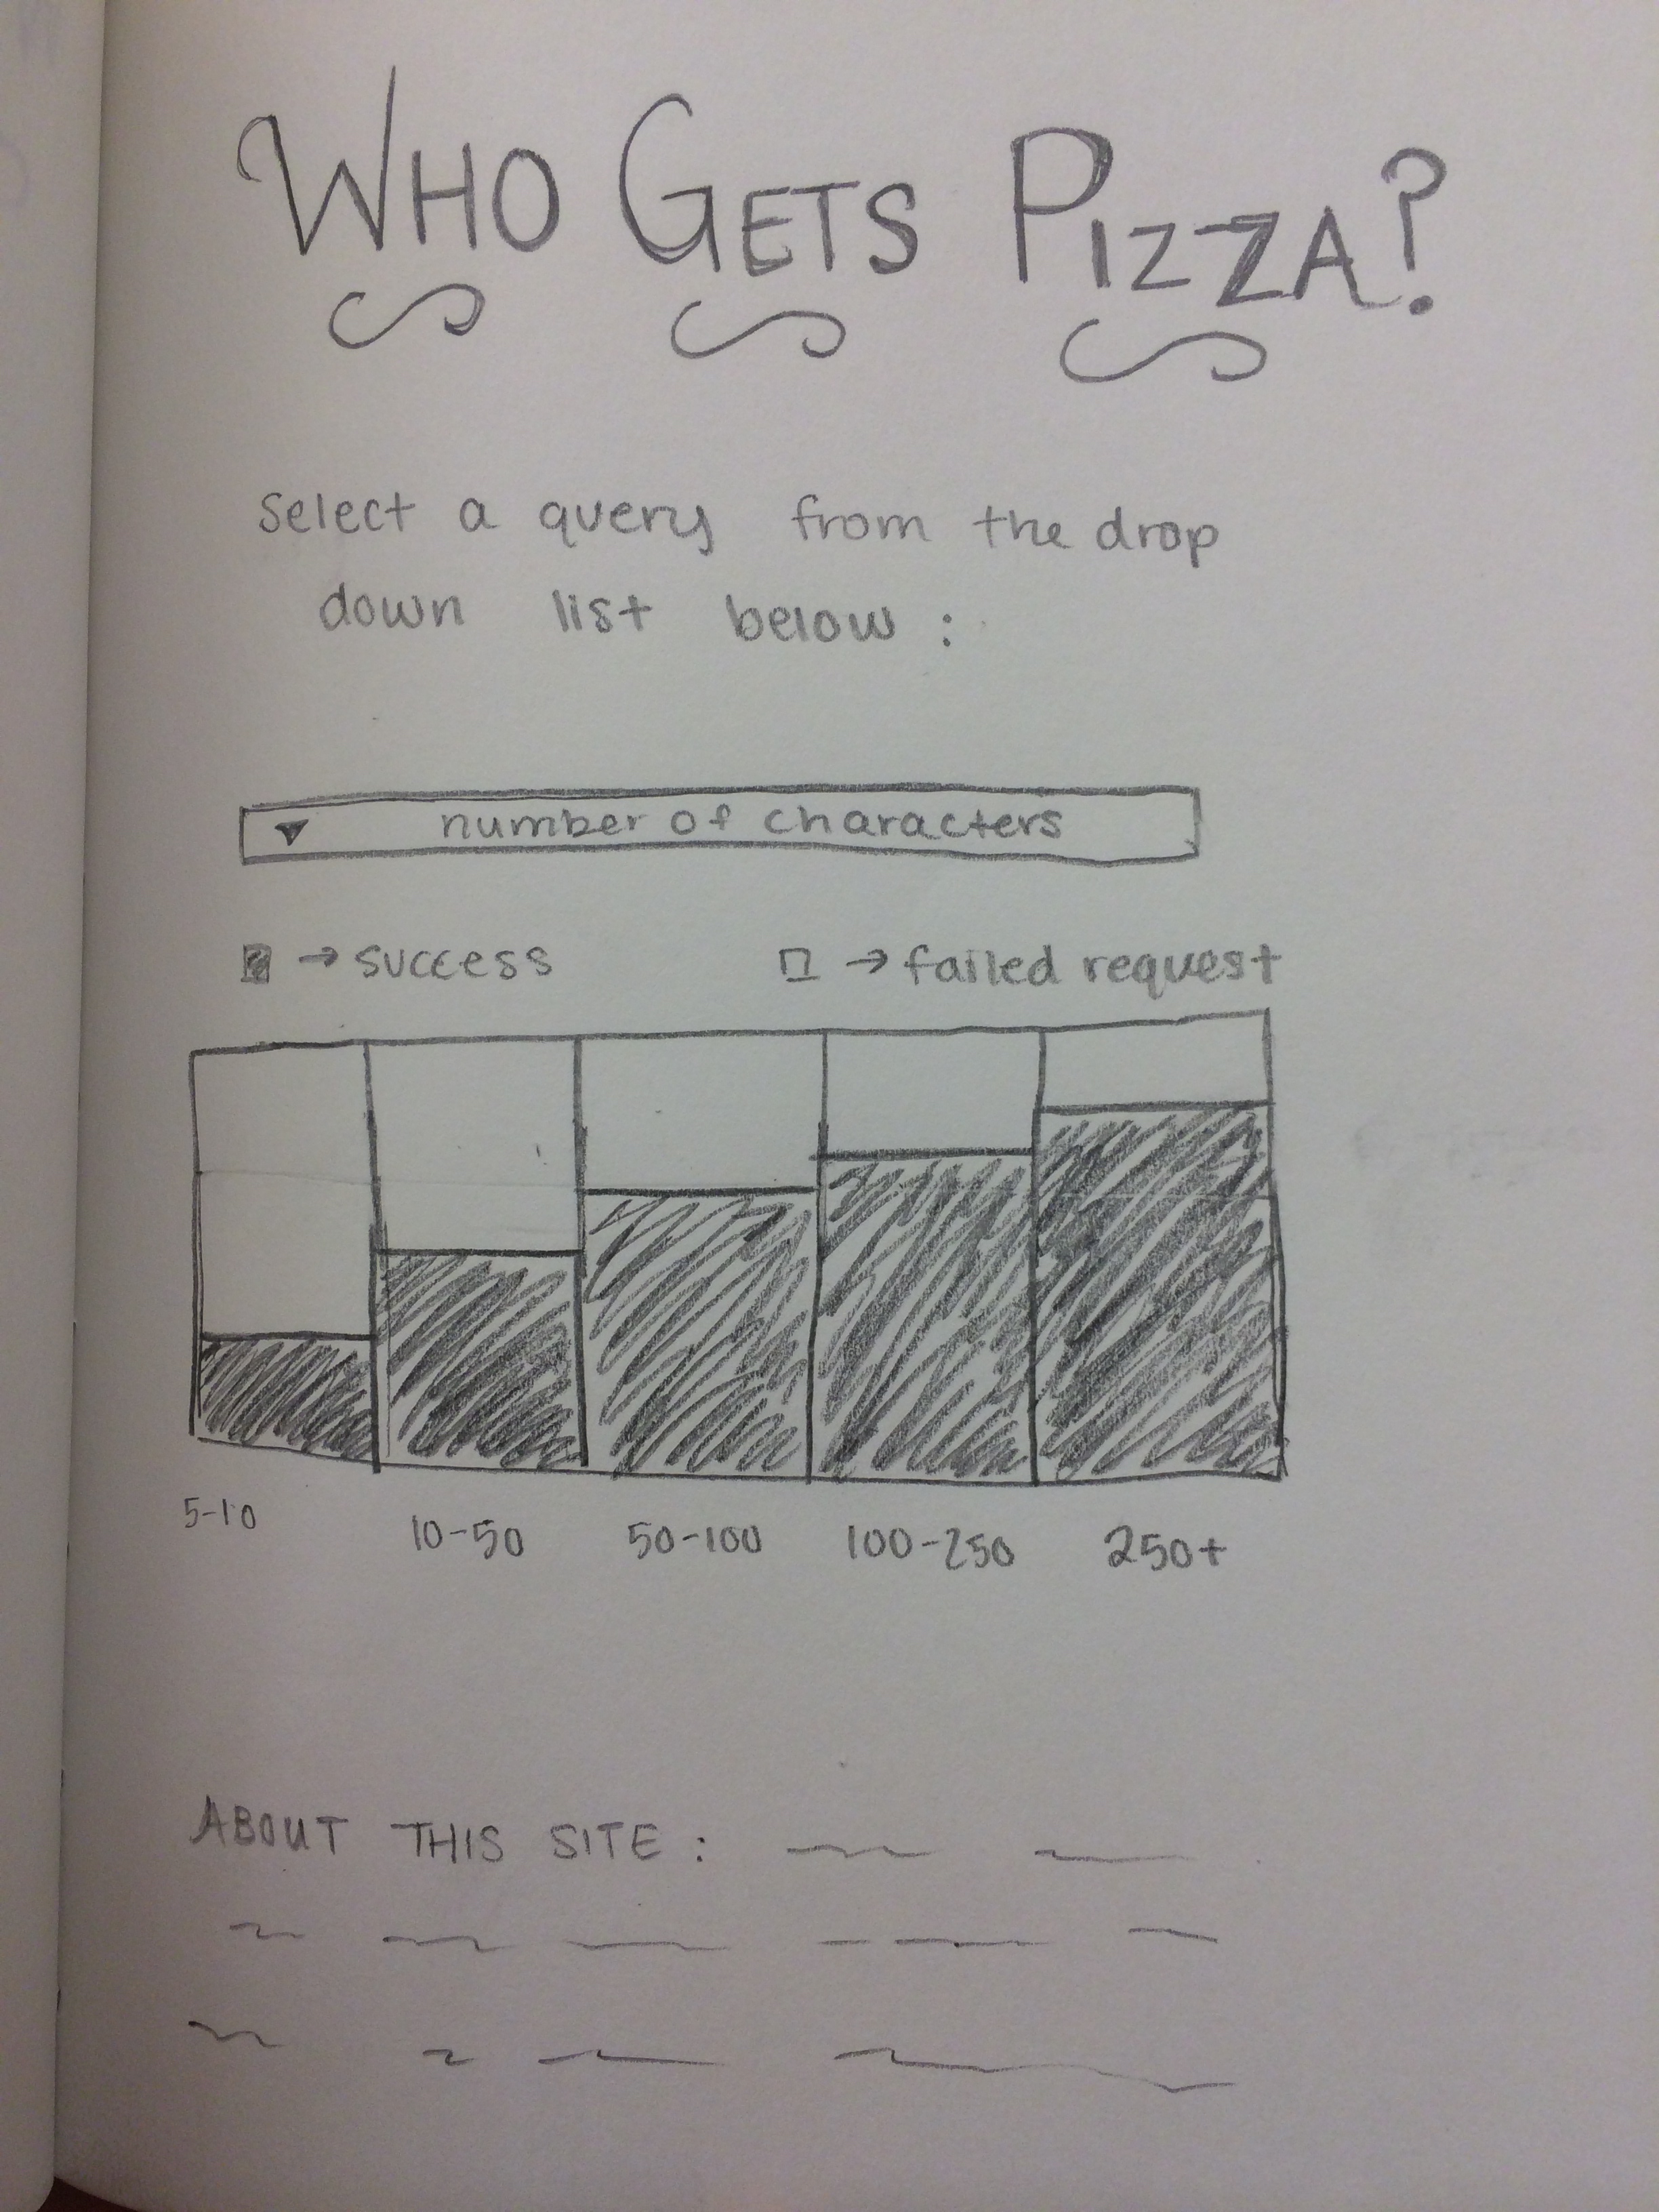 WHO GETS PIZZA?
Select a query from the drop
down list below :
number of characters
→ success → failed request
5-10 10-50 50-100 100-250 250+
ABOUT THIS SITE :